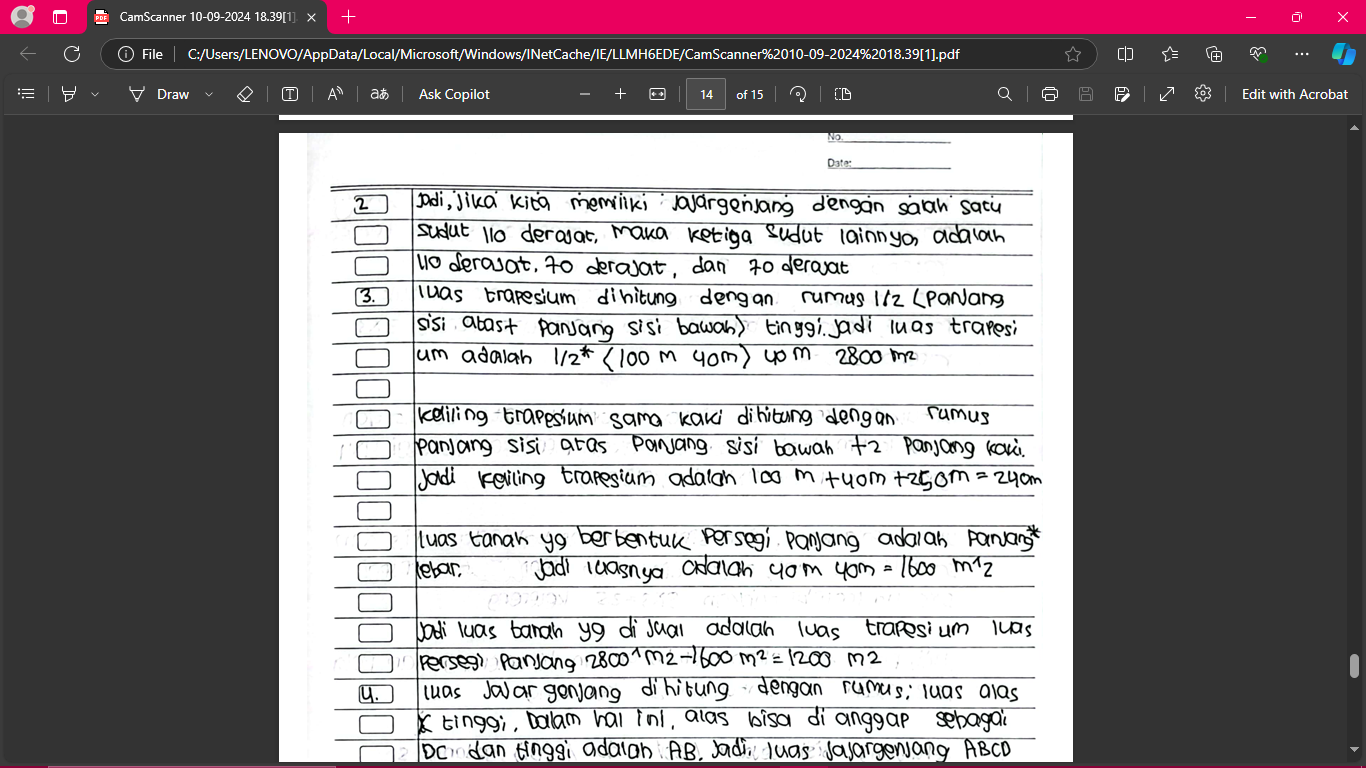 CamScanner 10-09-2024 18.39[1]
File
C:/Users/LENOVO/AppData/Local/Microsoft/Windows/INetCache/IE/LLMH6EDE/CamScanner%2010-09-2024%2018.39[1].pdf
Draw
Ask Copilot
14 of 15
Edit with Acrobat
No.
Date:
2 Jadi, jika kita memiliki jajargenjang dengan salah satu
sudut 110 derajat, maka ketiga sudut lainnya, adalah
110 derajat, 70 derajat, dan 70 derajat
3. luas trapesium dihitung dengan rumus 1/2 (Panjang
sisi atas+ Panjang sisi bawah) tinggi. Jadi luas trapesi
um adalah 1/2* (100 m 40m) 40 m 2800 m2
Keliling trapesium sama kaki dihitung dengan rumus
Panjang sisi atas Panjang sisi bawah +2 Panjang kaki.
Jadi keliling trapesium adalah 100 m +40m +250m = 240m
luas tanah yg berbentuk Persegi Panjang adalah Panjang*
lebar. Jadi luasnya adalah 40m 40m = 1600 m^2
Jadi luas tanah yg di jual adalah luas trapesium luas
Persegi Panjang 2800^m2-1600 m2 = 1200 m2
4. luas Jajar genjang dihitung dengan rumus; luas alas
x tinggi, Dalam hal ini, alas bisa di anggap sebagai
DC dan tinggi adalah AB. Jadi, luas Jajargenjang ABCD